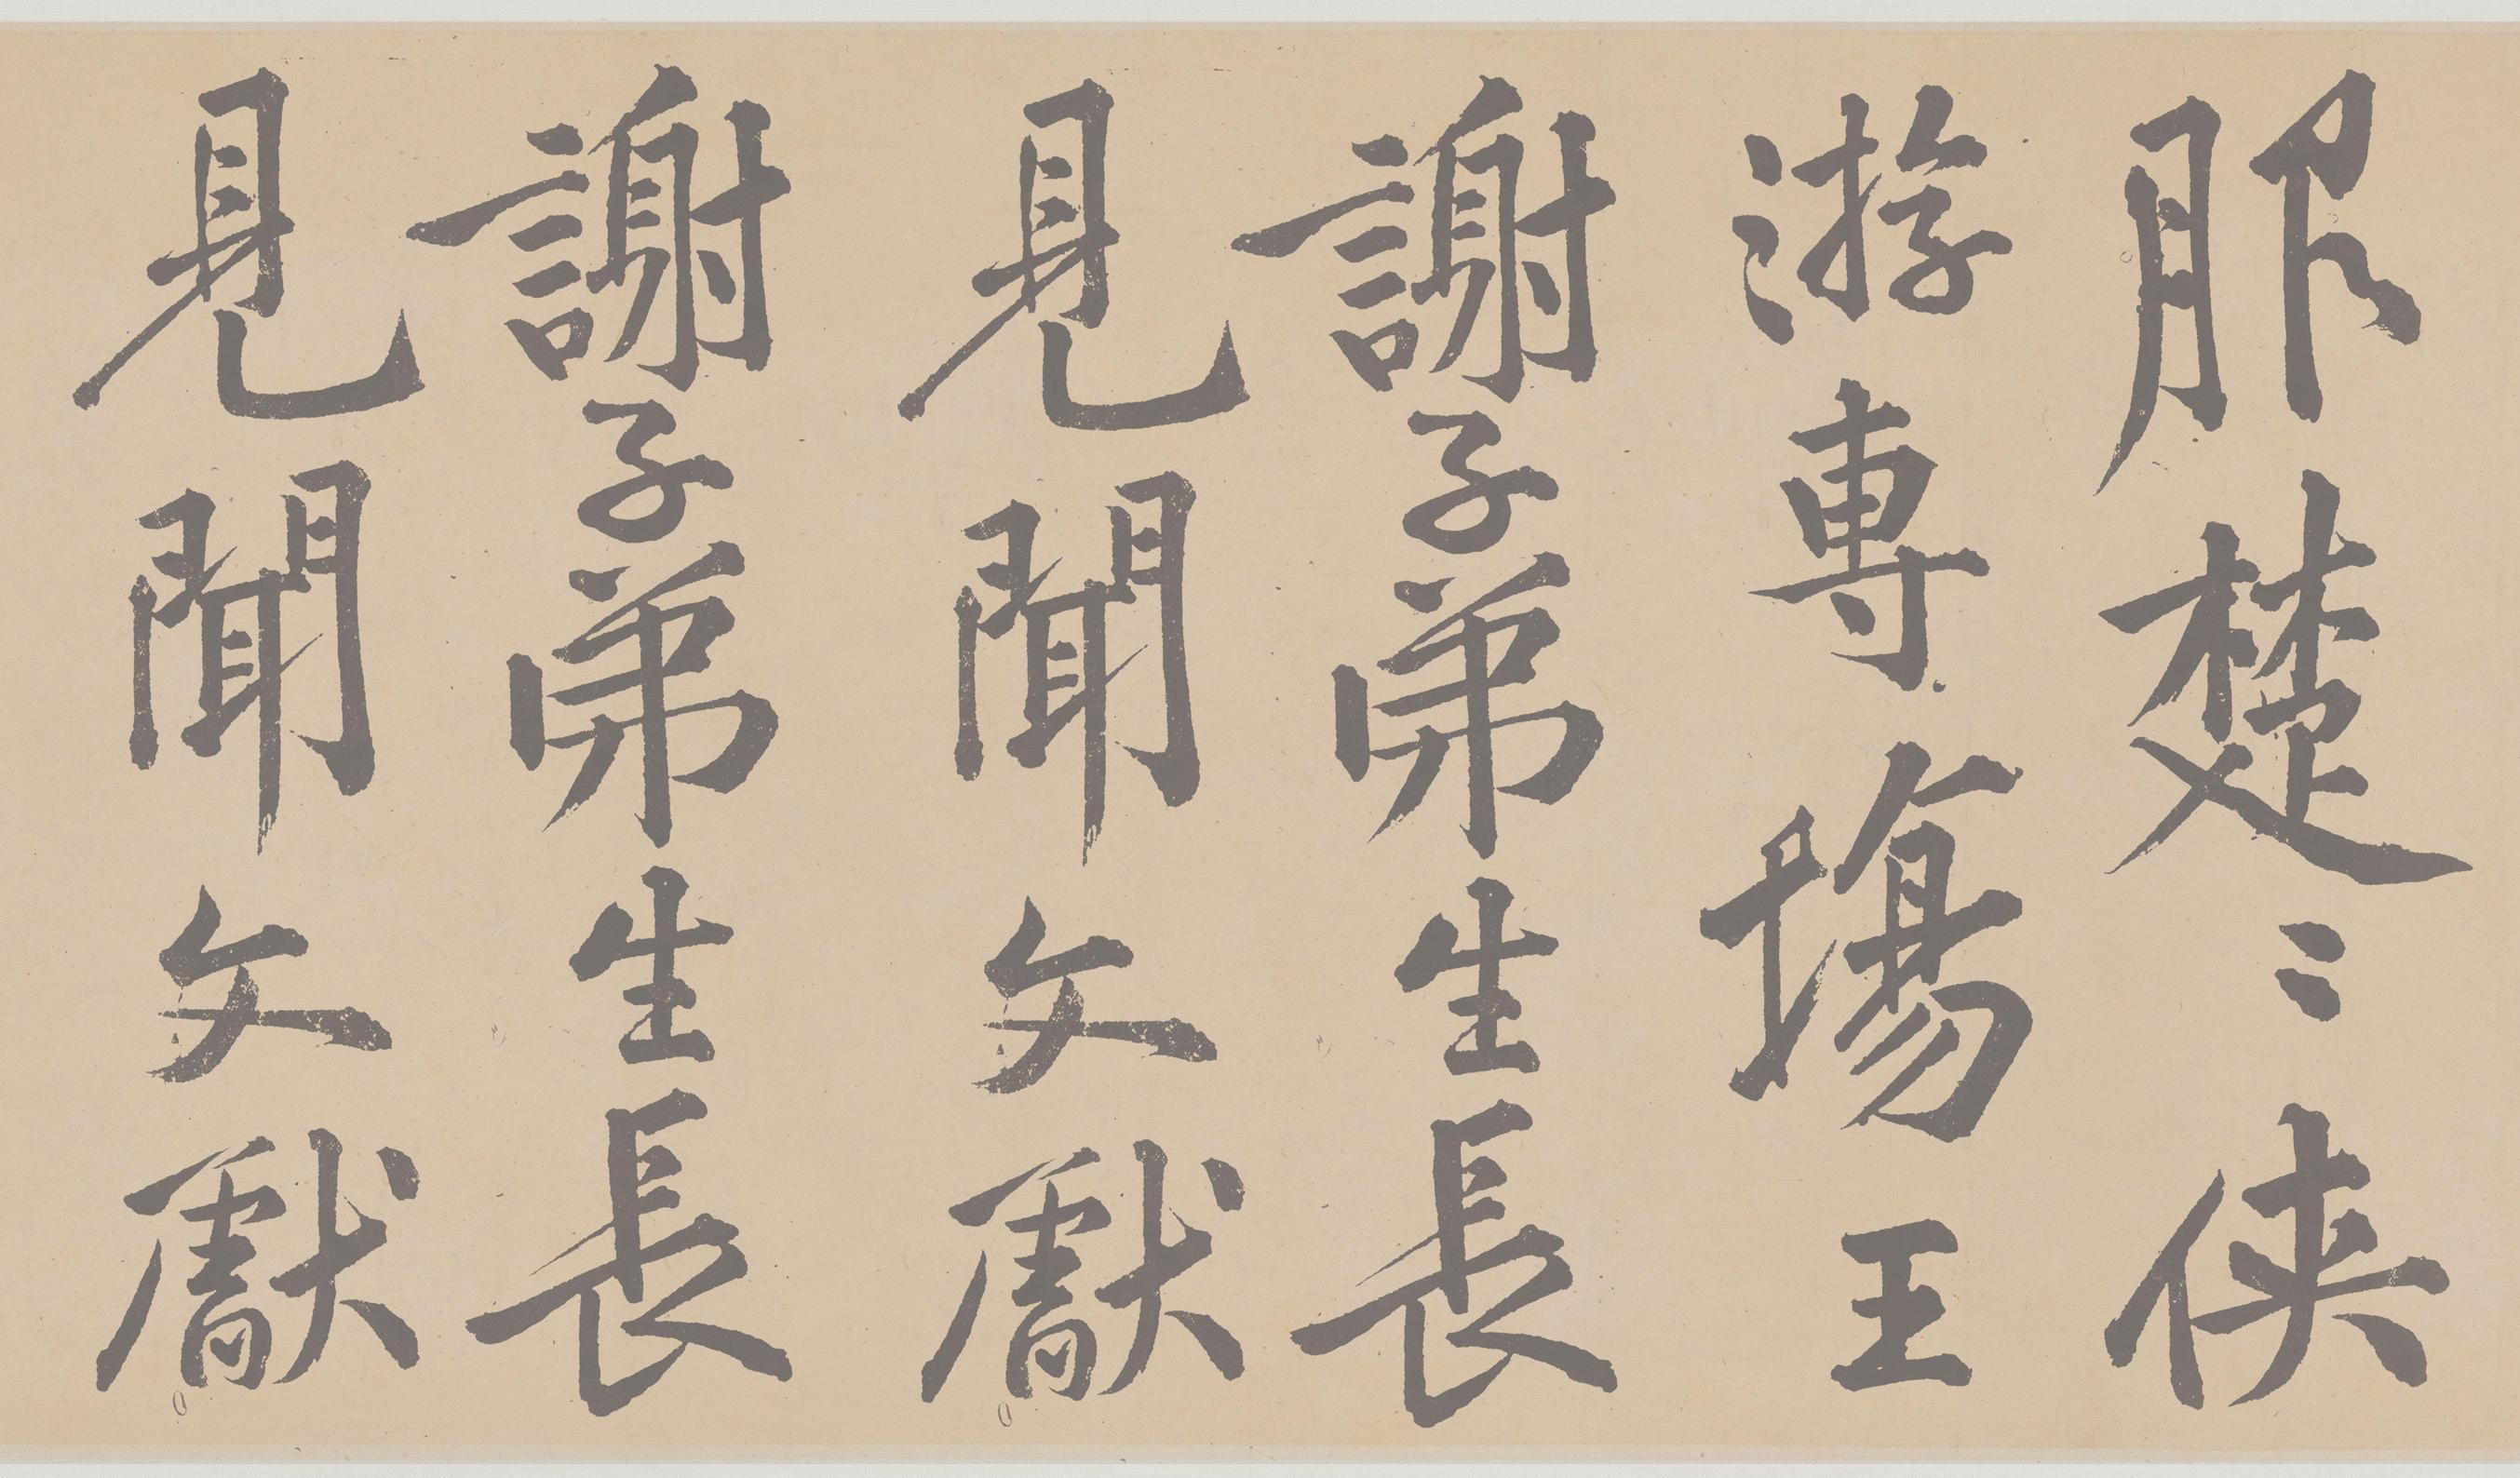 服楚〻俠
游專場王
謝子弟生長
見聞文獻
謝子弟生長
見聞文獻